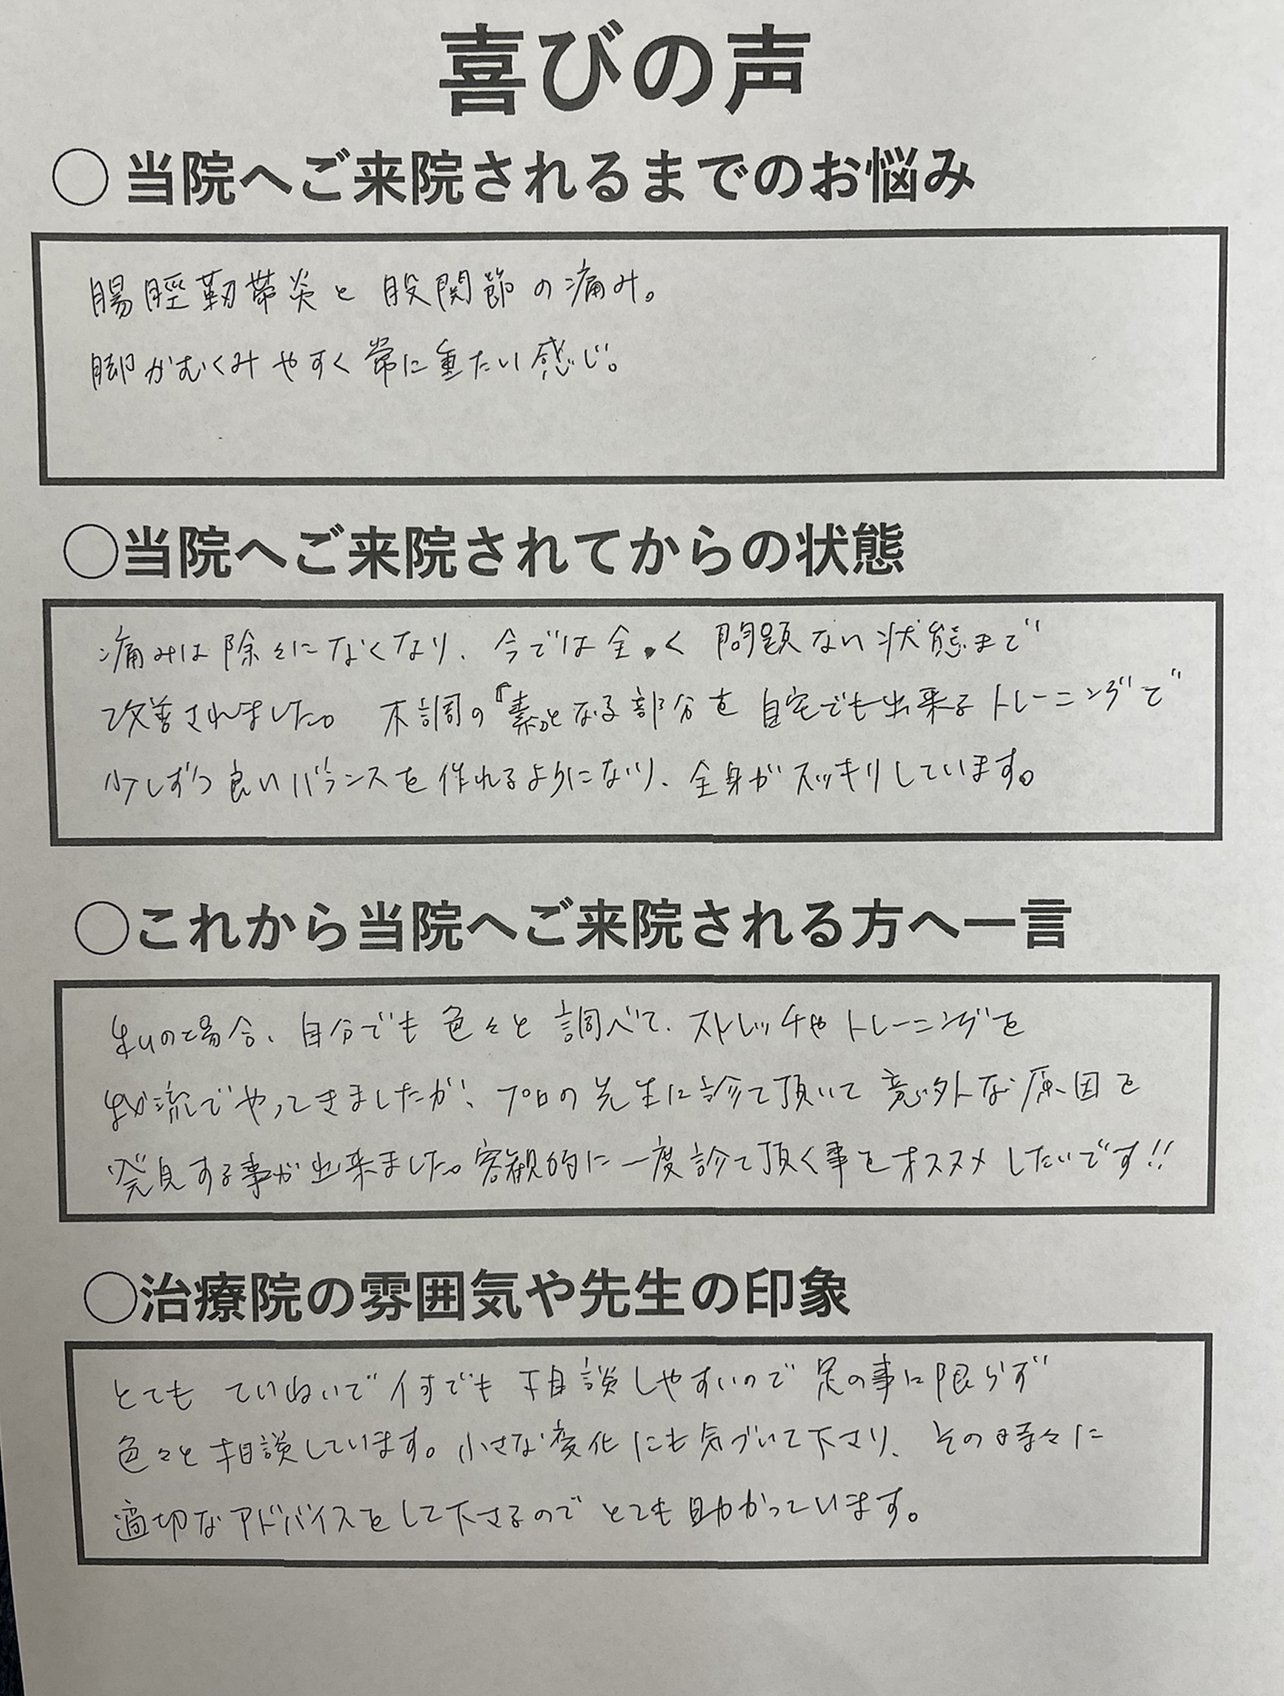 喜びの声
○当院へご来院されるまでのお悩み
腸脛靭帯炎と股関節の痛み。
脚がむくみやすく常に重たい感じ。
○当院へご来院されてからの状態
痛みは除々になくなり、今では全く問題ない状態まで
改善されました。不調の『素』となる部分を自宅でも出来るトレーニングで
少しずつ良いバランスを作れるようになり、全身がスッキリしています。
○これから当院へご来院される方へ一言
私の場合、自分でも色々と調べて、ストレッチやトレーニングを
我流でやってきましたが、プロの先生に診て頂いて意外な原因を
発見する事が出来ました。客観的に一度診て頂く事をオススメしたいです!!
○治療院の雰囲気や先生の印象
とてもていねいで何でも相談しやすいので足の事に限らず
色々と相談しています。小さな変化にも気づいて下さり、その時々に
適切なアドバイスをして下さるのでとても助かっています。